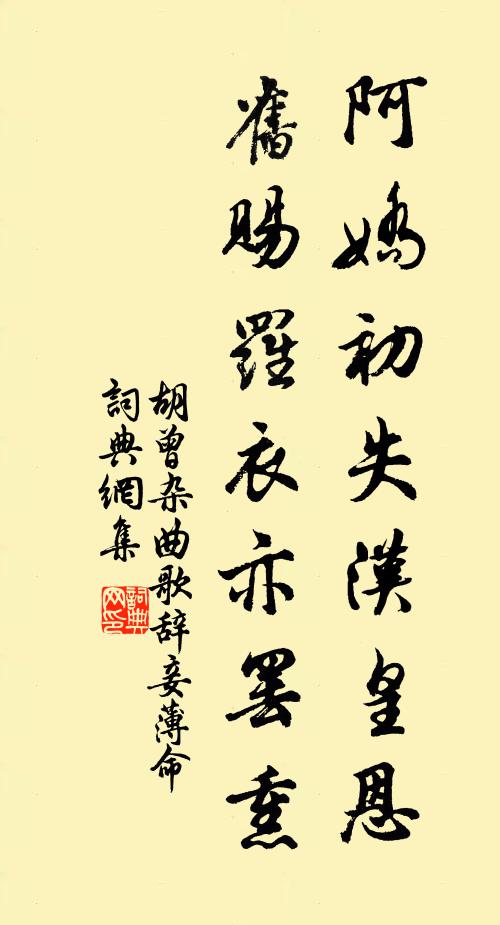 阿嬌初失漢皇恩
舊賜羅衣亦罷熏
胡曾杂曲歌辞妾薄命
詞典網集
詞典網印